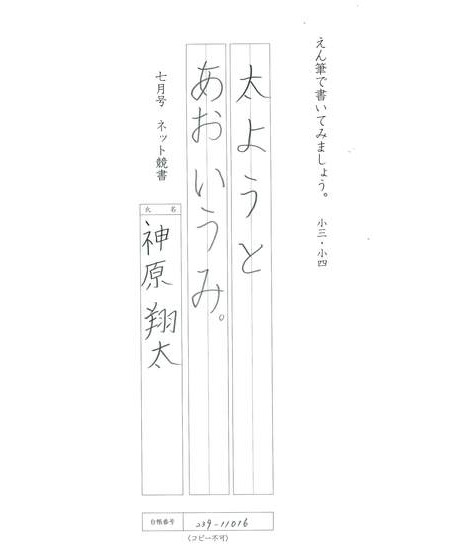 えん筆で書いてみましょう。 小三・小四
太ようと
あおいうみ。
七月号 ネット競書
氏名
神原翔太
台帳番号 239-11016
(コピー不可)